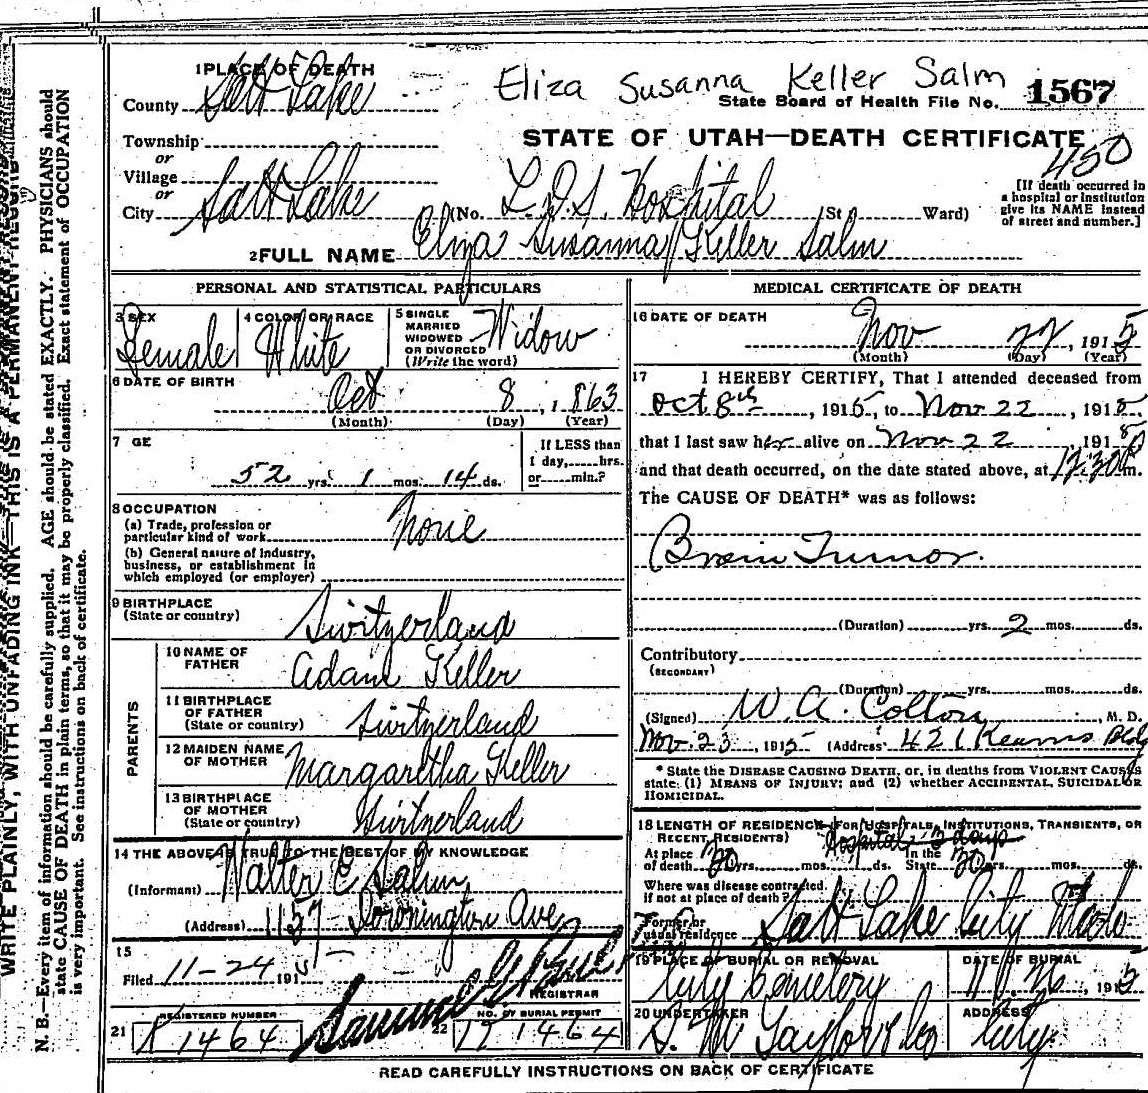 Eliza Susanna Keller Salm
State Board of Health File No. 1567
STATE OF UTAH—DEATH CERTIFICATE
450
1 PLACE OF DEATH
County Salt Lake
Township
or
Village
or
City Salt Lake (No. L.D.S. Hospital (St Ward)
[If death occurred in a hospital or institution give its NAME instead of street and number.]
2 FULL NAME Eliza Susanna Keller Salm
PERSONAL AND STATISTICAL PARTICULARS
3 SEX Female
4 COLOR OR RACE White
5 SINGLE MARRIED WIDOWED OR DIVORCED (Write the word) Widow
6 DATE OF BIRTH Oct 8, 1863
(Month) (Day) (Year)
7 GE 52 yrs. 1 mos. 14 ds.
If LESS than 1 day, hrs. or min.?
8 OCCUPATION
(a) Trade, profession or particular kind of work None
(b) General nature of industry, business, or establishment in which employed (or employer)
9 BIRTHPLACE (State or country) Switzerland
PARENTS
10 NAME OF FATHER Adam Keller
11 BIRTHPLACE OF FATHER (State or country) Switzerland
12 MAIDEN NAME OF MOTHER Margaretha Keller
13 BIRTHPLACE OF MOTHER (State or country) Switzerland
14 THE ABOVE IS TRUE TO THE BEST OF MY KNOWLEDGE
(Informant) Walter E Salm
(Address) 1157 Ave
15
Filed 11-24 191
REGISTRAR
21 REGISTERED NUMBER 1464
22 NO. OF BURIAL PERMIT 1464
MEDICAL CERTIFICATE OF DEATH
16 DATE OF DEATH Nov 22, 1915
(Month) (Day) (Year)
17 I HEREBY CERTIFY, That I attended deceased from
Oct 8th, 1915, to Nov 22, 1915
that I last saw her alive on Nov 22, 191
and that death occurred, on the date stated above, at 12:30 P m.
The CAUSE OF DEATH* was as follows:
Brain Tumor.
(Duration) yrs. 2 mos. ds.
Contributory
(SECONDARY)
(Duration) yrs. mos. ds.
(Signed) W. A. Colton, M. D.
Nov. 23, 1915 (Address 421 Kearns Bldg
* State the DISEASE CAUSING DEATH, or, in deaths from VIOLENT CAUSES state: (1) MEANS OF INJURY; and (2) whether ACCIDENTAL, SUICIDAL OR HOMICIDAL.
18 LENGTH OF RESIDENCE (FOR HOSPITALS, INSTITUTIONS, TRANSIENTS, OR RECENT RESIDENTS) Hospital; 3 days
At place of death 30 yrs. mos. ds. In the State 30 yrs. mos. ds.
Where was disease contracted, if not at place of death?
Former or usual residence Salt Lake City
19 PLACE OF BURIAL OR REMOVAL City Cemetery
DATE OF BURIAL 191
20 UNDERTAKER S. M. Taylor & Co
ADDRESS City
READ CAREFULLY INSTRUCTIONS ON BACK OF CERTIFICATE
WRITE PLAINLY, WITH UNFADING INK—THIS IS A PERMANENT RECORD
N. B.—Every item of information should be carefully supplied. AGE should be stated EXACTLY. PHYSICIANS should
state CAUSE OF DEATH in plain terms, so that it may be properly classified. Exact statement of OCCUPATION
is very important. See instructions on back of certificate.